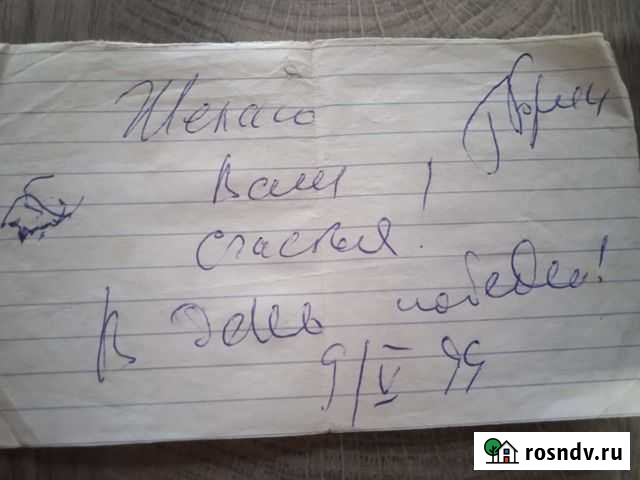 Желаю
Вам
счастья!
В день победы!
9/V 99
rosndv.ru